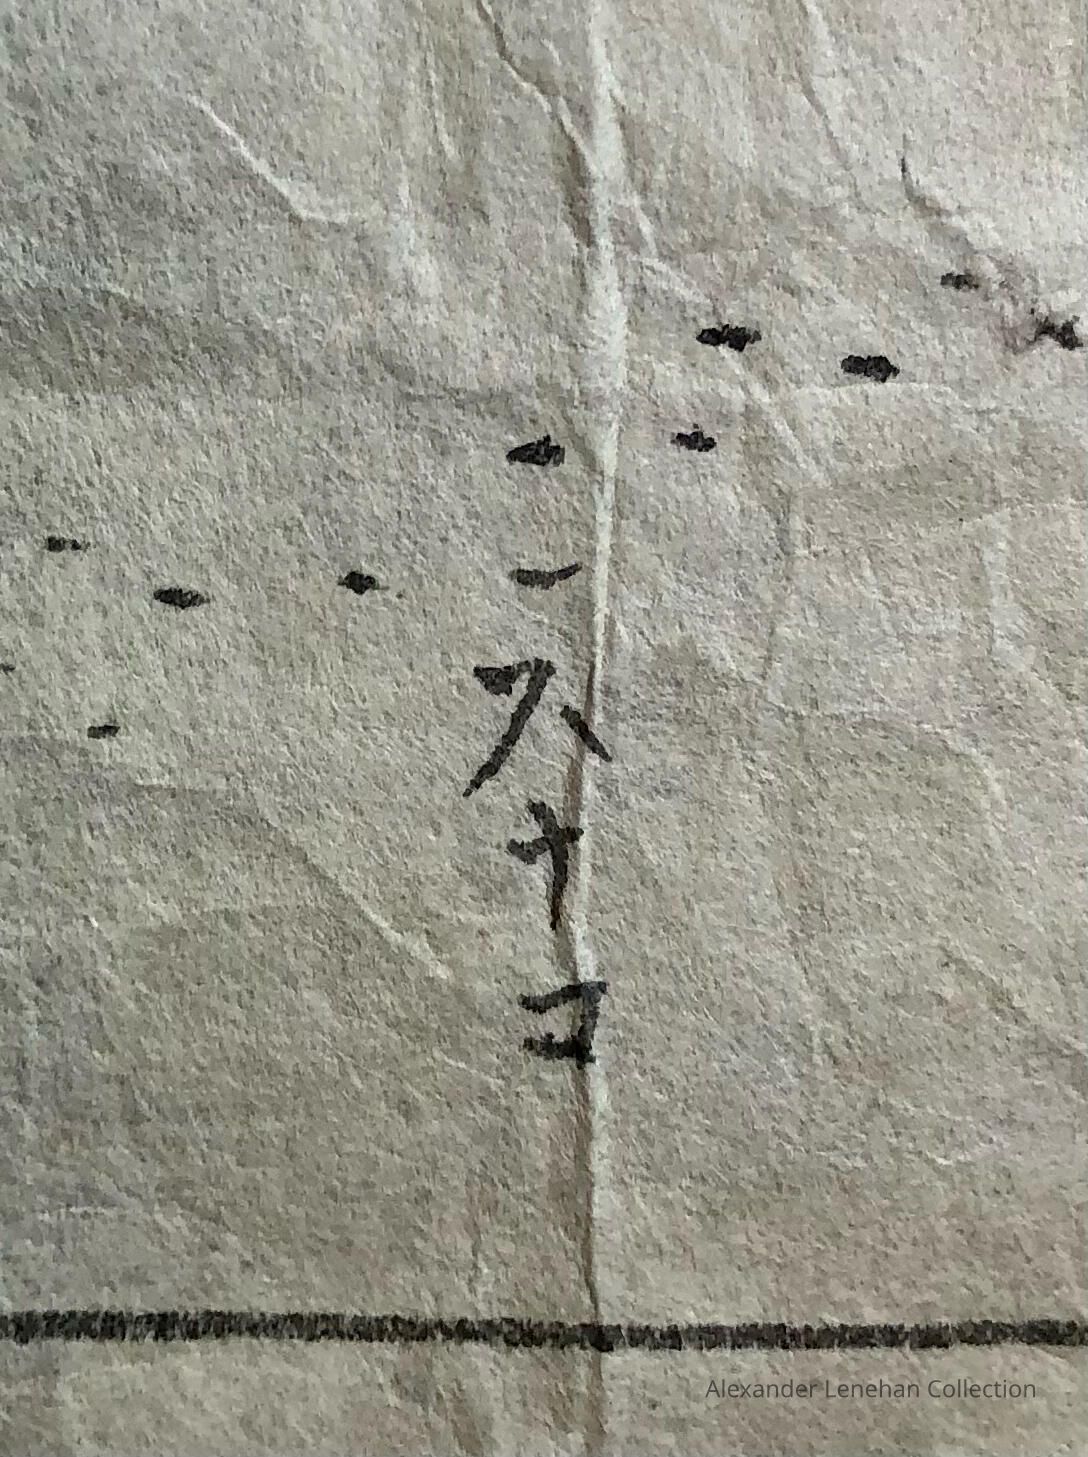 スナヨ
Alexander Lenehan Collection